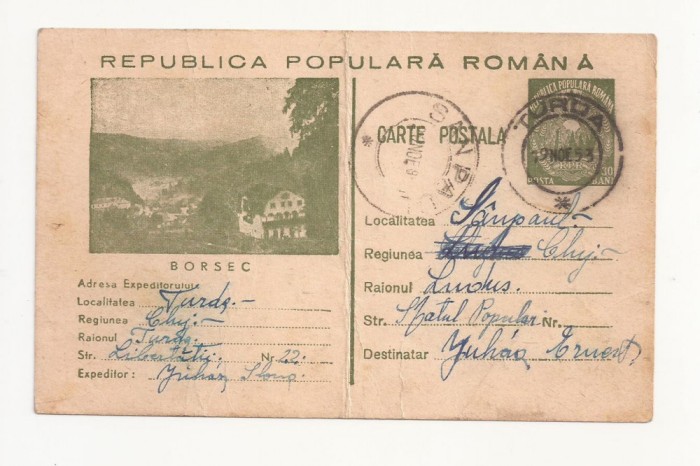 REPUBLICA POPULARĂ ROMÂNĂ
REPUBLICA POPULARĂ ROMÂNĂ
POSTA 30 BANI
TURDA
NOE 53
SÂNPAU
CARTE POSTALA
BORSEC
Adresa Expeditorului
Localitatea Turda.-
Regiunea Cluj.-
Raionul Turda.
Str. Libertății. Nr 22.
Expeditor: Yuhaz
Localitatea Sânpaul-
Regiunea Cluj.-
Raionul Luduș.
Str. Sfatul Popular Nr.
Destinatar Yuház Ernest,